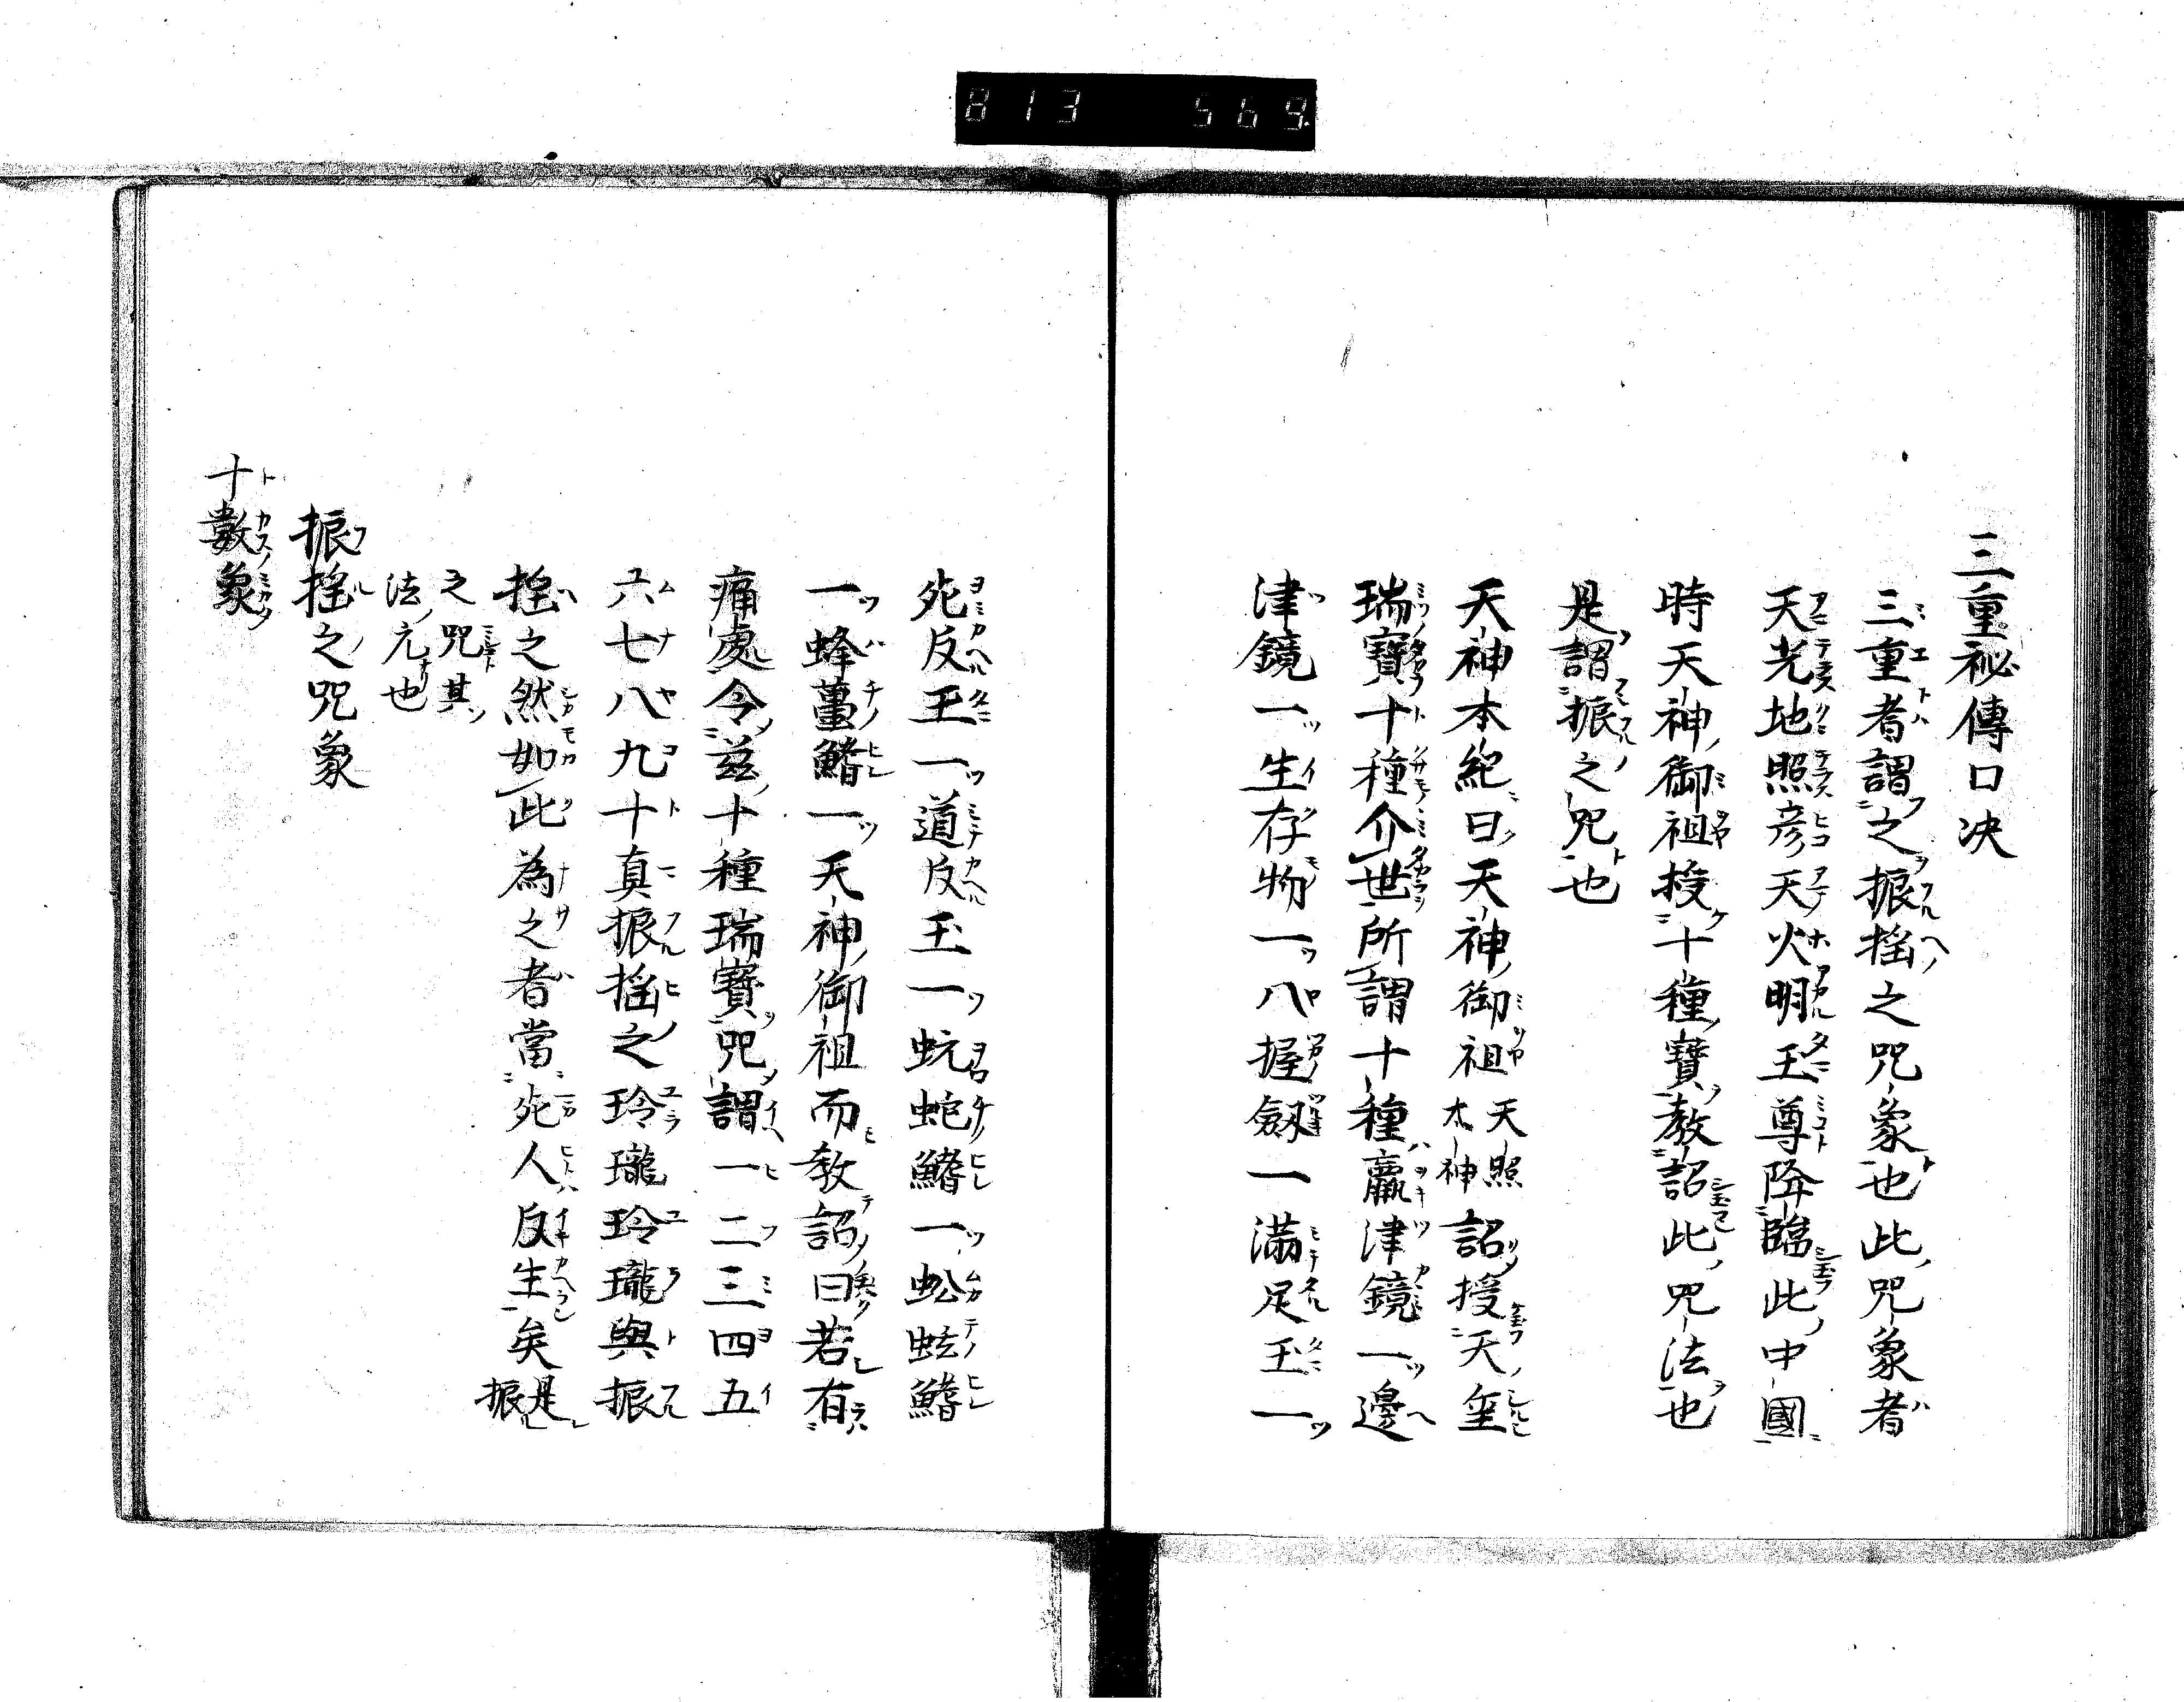 813 569
三重秘傳口决
三重者謂之振搖之咒象也此咒象者
天光地照彦天火明玉尊降臨此中國
時天神御祖授十種寶教詔此咒法也
是謂振之咒也
天神本紀曰天神御祖天照太神詔授天璽
瑞寶十種介世所謂十種羸津鏡一邊
津鏡一生存物一八握劔一満足玉一
死反玉一道反玉一蚖蛇鰭一蚣蛂鰭
一蜂薑鰭一天神御祖而教詔曰若有
痛處令茲十種瑞寶咒謂一二三四五
六七八九十真振搖之玲瓏玲瓏與振
搖之然如此為之者當死人反生矣是振
之咒其
法元也
振搖之咒象
十數象